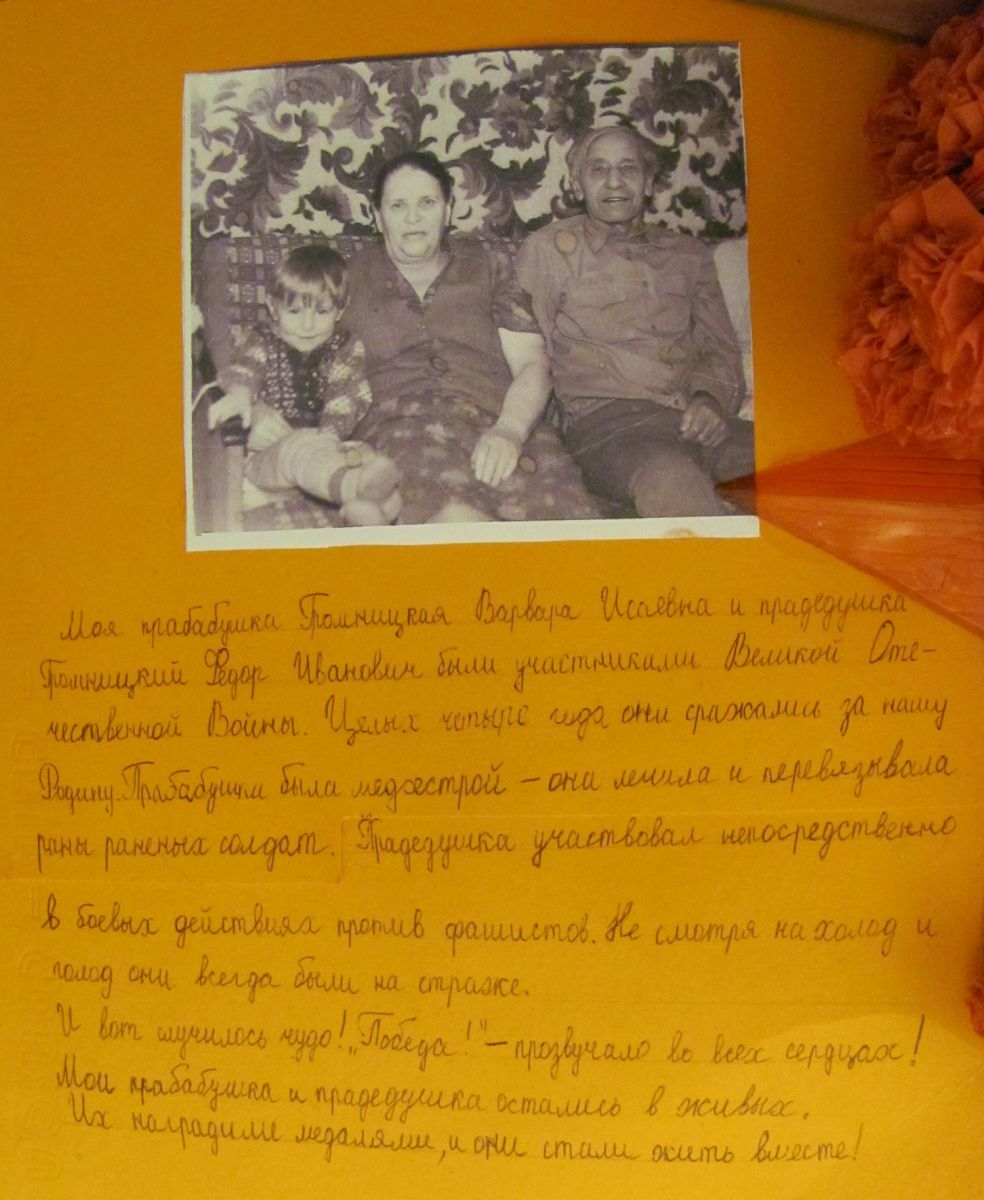 Моя прабабушка Громницкая Варвара Исаевна и прадедушка
Громницкий Федор Иванович были участниками Великой Оте-
чественной Войны. Целых четыре года они сражались за нашу
Родину. Прабабушка была медсестрой – она лечила и перевязывала
раны раненых солдат. Прадедушка участвовал непосредственно
в боевых действиях против фашистов. Не смотря на холод и
голод они всегда были на страже.
И вот случилось чудо! „Победа!" – прозвучало во всех сердцах!
Мои прабабушка и прадедушка остались в живых.
Их наградили медалями, и они стали жить вместе!